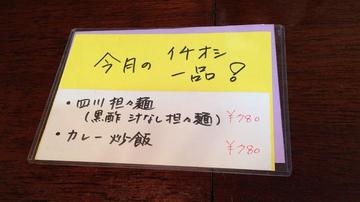 今月の イチオシ
一品!
・四川 担々麺
(黒酢 汁なし担々麺) ¥780
・カレー 炒飯 ¥780